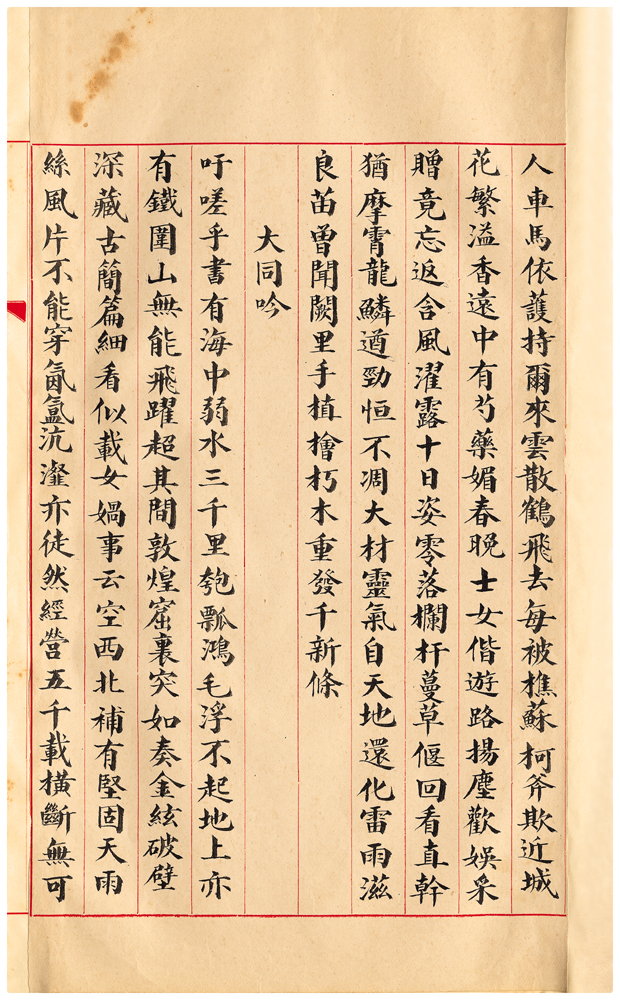 人車馬依護持爾來雲散鶴飛去每被樵蘇柯斧欺近城
花繁溢香遠中有芍藥媚春晚士女偕遊路揚塵歡娛采
贈竟忘返含風濯露十日姿零落欄杆蔓草偃回看直幹
猶摩霄龍鱗遒勁恒不凋大材靈氣自天地還化雷雨滋
良苗曾聞闕里手植檜朽木重發千新條
大同吟
吁嗟乎書有海中弱水三千里匏瓢鴻毛浮不起地上亦
有鐵圍山無能飛躍超其間敦煌窟裏突如奏金絃破壁
深藏古簡篇細看似載女媧事云空西北補有堅固天雨
絲風片不能穿氤氳沆瀣亦徒然經營五千載橫斷無可